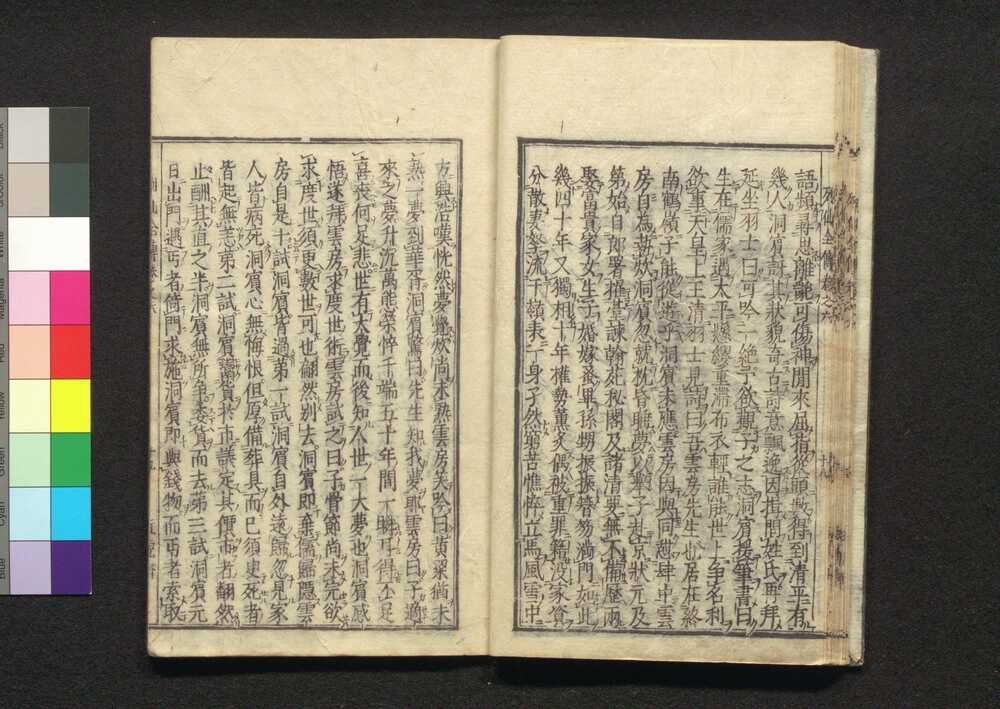 語頻尋思離亂可傷神閒來屈指從頭數得到清平有
幾人洞賓訝其狀貌奇古詩意飄逸因揖問姓氏再拜
延坐羽士曰可吟一絶予欲觀子之志洞賓援筆書曰
生在儒家遇太平懸纓重滯布衣輕誰能世上爭名利
欲事天皇上玉清羽士見詩曰吾雲房先生也居在終
南鶴嶺子能從遊乎洞賓未應雲房因與同憩肆中雲
房自為執炊洞賓忽就枕昏睡夢以舉子赴京狀元及
第始自郎署擢臺諫翰苑秘閣及諸清要無不備歷兩
娶富貴家女生子婚嫁蚤畢孫甥振振簪笏滿門如此
幾四十年又獨相十年權勢薰炙偶被重罪籍沒家資
分散妻孥流于嶺表一身孑然窮苦憔悴立馬風雪中
方興浩嘆恍然夢覺炊尚未熟雲房笑吟曰黃粱猶未
熟一夢到華胥洞賓驚曰先生知我夢耶雲房曰子適
來之夢升沉萬態榮悴千端五十年間一瞬耳得不足
喜喪何足悲世有大覺而後知人世一大夢也洞賓感
悟遂拜雲房求度世術雲房試之曰子骨節尚未完欲
求度世須更數世可也翩然別去洞賓即棄儒歸隱雲
房自是十試洞賓皆過第一試洞賓自外遠歸忽見家
人皆病死洞賓心無悔恨但厚備葬具而已須臾死者
皆起無恙第二試洞賓鬻貨於市議定其價市者翻然
止酬其直之半洞賓無所爭委貨而去第三試洞賓元
日出門遇丐者倚門求施洞賓即與錢物而丐者索取
列仙全傳卷之六